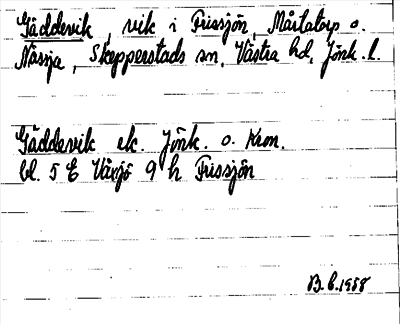 Gäddevik, vik i Frissjön, Mårtatorp o.
Nässja, Skepperstads sn, Västra hd, Jönk. l.
Gäddevik ek. Jönk. o. Kron.
bl. 5 E Växjö 9 h Frissjön
B. 6. 1958